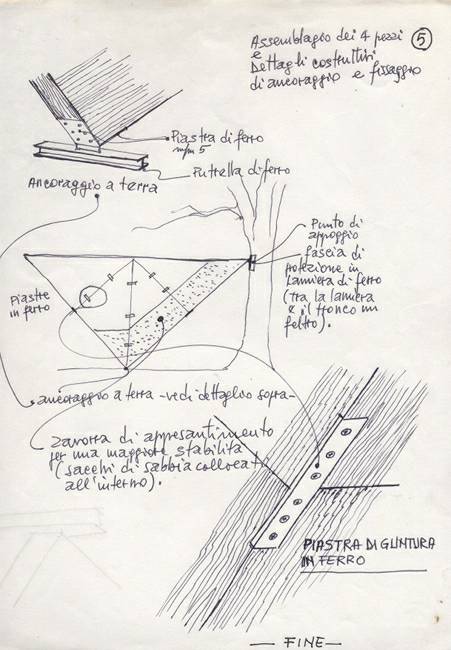 Assemblaggio dei 4 pezzi
e
Dettagli costruttivi
di ancoraggio e fissaggio
5
Piastra di ferro
m/m 5
Putrella di ferro
Ancoraggio a terra
Punto di
appoggio
fascia di
protezione in
lamiera di ferro
(tra la lamiera
e il tronco un
feltro).
Piastre
in ferro
ancoraggio a terra - vedi dettaglio sopra -
Zavorra di appesantimento
per una maggiore stabilità
(sacchi di sabbia collocati
all'interno).
PIASTRA DI GIUNTURA
IN FERRO
— FINE —